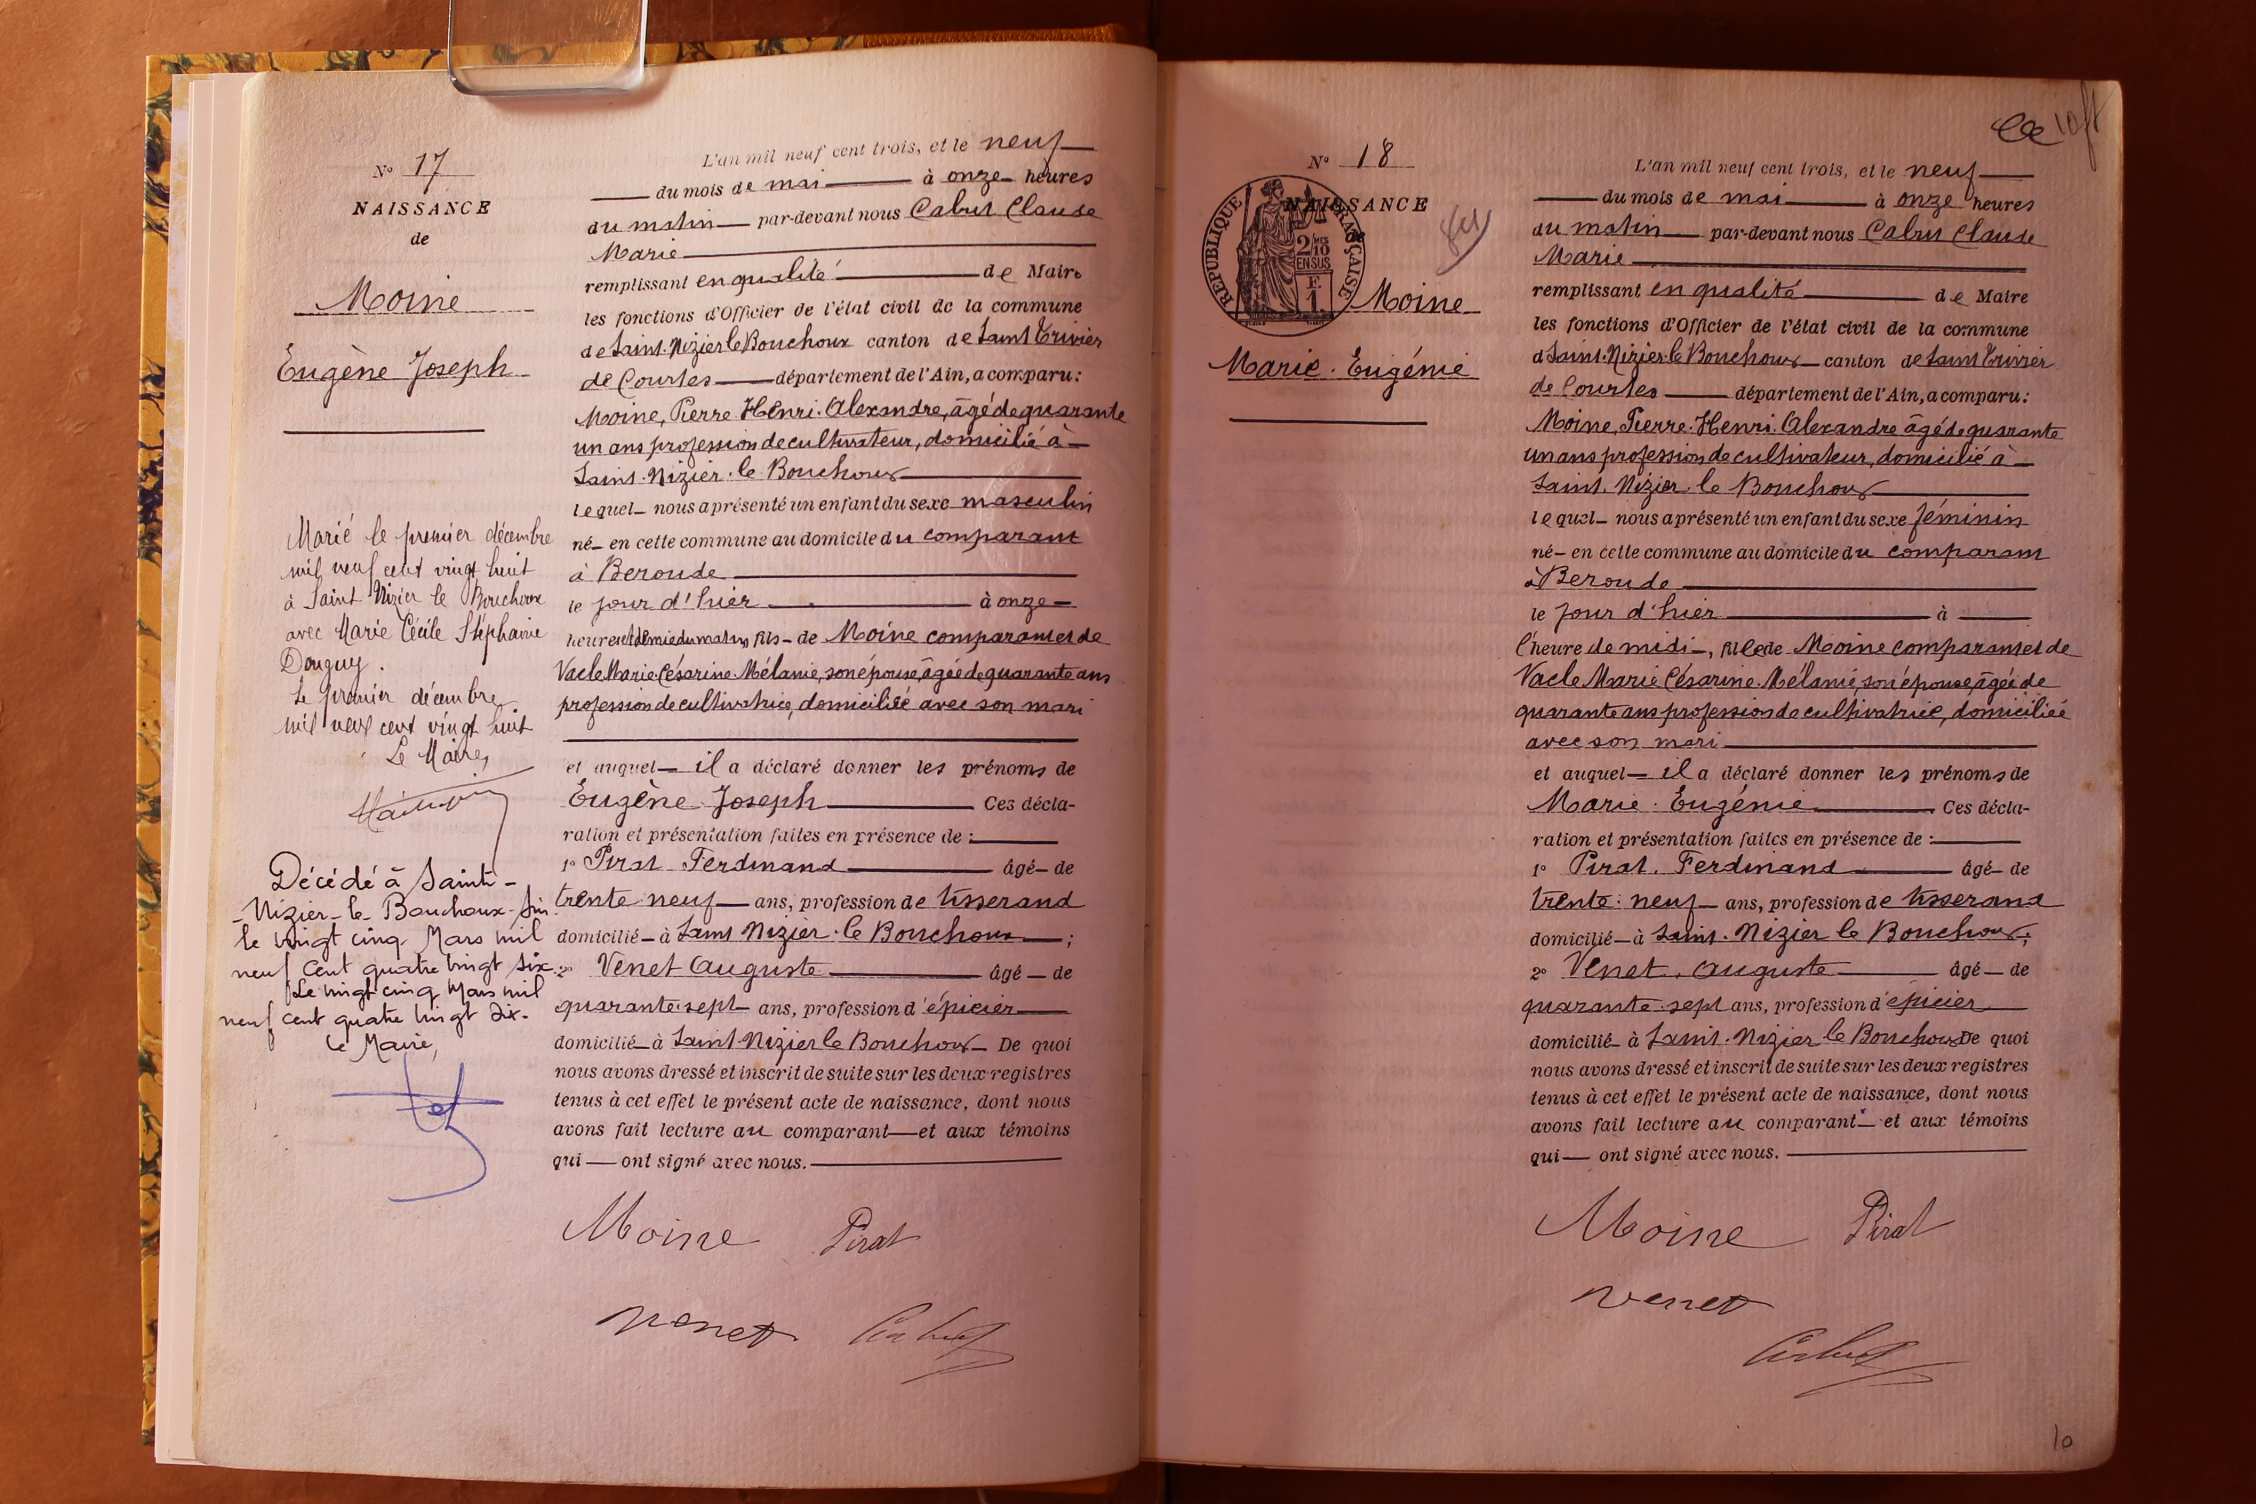 N° 17
NAISSANCE
de
Moine
Eugène Joseph
Marié le premier décembre
mil neuf cent vingt huit
à Saint Nizier le Bouchoux
avec Marie Cécile Stéphanie
Donguy.
Le premier décembre
mil neuf cent vingt huit
Le Maire,
Décédé à Saint-
-Nizier-le-Bouchoux-Ain
le vingt cinq Mars mil
neuf cent quatre vingt six.
Le vingt cinq Mars mil
neuf cent quatre vingt six.
Le Maire,
L'an mil neuf cent trois, et le neuf
du mois de mai à onze heures
du matin par-devant nous Cabut Claude
Marie
remplissant en qualité de Maire
les fonctions d'Officier de l'état civil de la commune
de Saint-Nizier le Bouchoux canton de Saint Trivier
de Courtes département de l'Ain, a comparu:
Moine, Pierre Henri Alexandre, âgé de quarante
un ans profession de cultivateur, domicilié à
Saint-Nizier-le Bouchoux
lequel nous a présenté un enfant du sexe masculin
né en cette commune au domicile du comparant
à Beroude
le jour d'hier à onze
heures et demie du matin, fils de Moine comparant et de
Vacle Marie Césarine Mélanie, son épouse, âgée de quarante ans
profession de cultivatrice, domiciliée avec son mari
et auquel il a déclaré donner les prénoms de
Eugène Joseph Ces décla-
ration et présentation faites en présence de :
1° Pirat Ferdinand âgé de
trente neuf ans, profession de tisserand
domicilié à Saint Nizier le Bouchoux ;
2° Venet Auguste âgé de
quarante sept ans, profession d'épicier
domicilié à Saint-Nizier le Bouchoux De quoi
nous avons dressé et inscrit de suite sur les deux registres
tenus à cet effet le présent acte de naissance, dont nous
avons fait lecture au comparant et aux témoins
qui ont signé avec nous.
Moine Pirat
Venet Cabut
10
N° 18
NAISSANCE
RÉPUBLIQUE FRANÇAISE
2/10
EN SUS
F.
1.
Moine
Marie Eugénie
L'an mil neuf cent trois, et le neuf
du mois de mai à onze heures
du matin par-devant nous Cabut Claude
Marie
remplissant en qualité de Maire
les fonctions d'Officier de l'état civil de la commune
d Saint-Nizier le Bouchoux canton de Saint Trivier
de Courtes département de l'Ain, a comparu:
Moine, Pierre Henri Alexandre âgé de quarante
un ans profession de cultivateur, domicilié à
Saint Nizier le Bouchoux
lequel nous a présenté un enfant du sexe féminin
né en cette commune au domicile du comparant
à Beroude
le jour d'hier à
l'heure de midi, fille de Moine comparant et de
Vacle Marie Césarine Mélanie, son épouse, âgée de
quarante ans profession de cultivatrice, domiciliée
avec son mari
et auquel il a déclaré donner les prénoms de
Marie Eugénie Ces décla-
ration et présentation faites en présence de :
1° Pirat Ferdinand âgé de
trente neuf ans, profession de tisserand
domicilié à Saint-Nizier le Bouchoux;
2° Venet Auguste âgé de
quarante sept ans, profession d'épicier
domicilié à Saint-Nizier le Bouchoux De quoi
nous avons dressé et inscrit de suite sur les deux registres
tenus à cet effet le présent acte de naissance, dont nous
avons fait lecture au comparant et aux témoins
qui ont signé avec nous.
Moine Pirat
Venet
Cabut
10